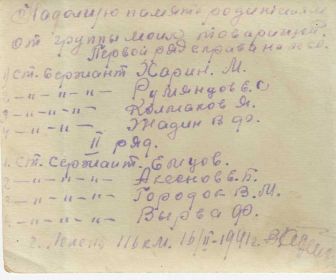 На долгую память родителям
от группы моих товарищей.
Первой ряд справа на лево.
1 Ст. Сержант Карин. М.
2 –"–"–"– Румянцов С.
3 –"–"–"– Колмаков Я.
4 –"–"–"– Жадин В Ф.
II ряд.
1. Ст. Сержант. Емцов.
2 –"–"–"– Аксенов Б. Г.
3 –"–"–"– Городок В. М.
4 –"–"–"– Вырва Ф.
116 км. 16/II-1941г.